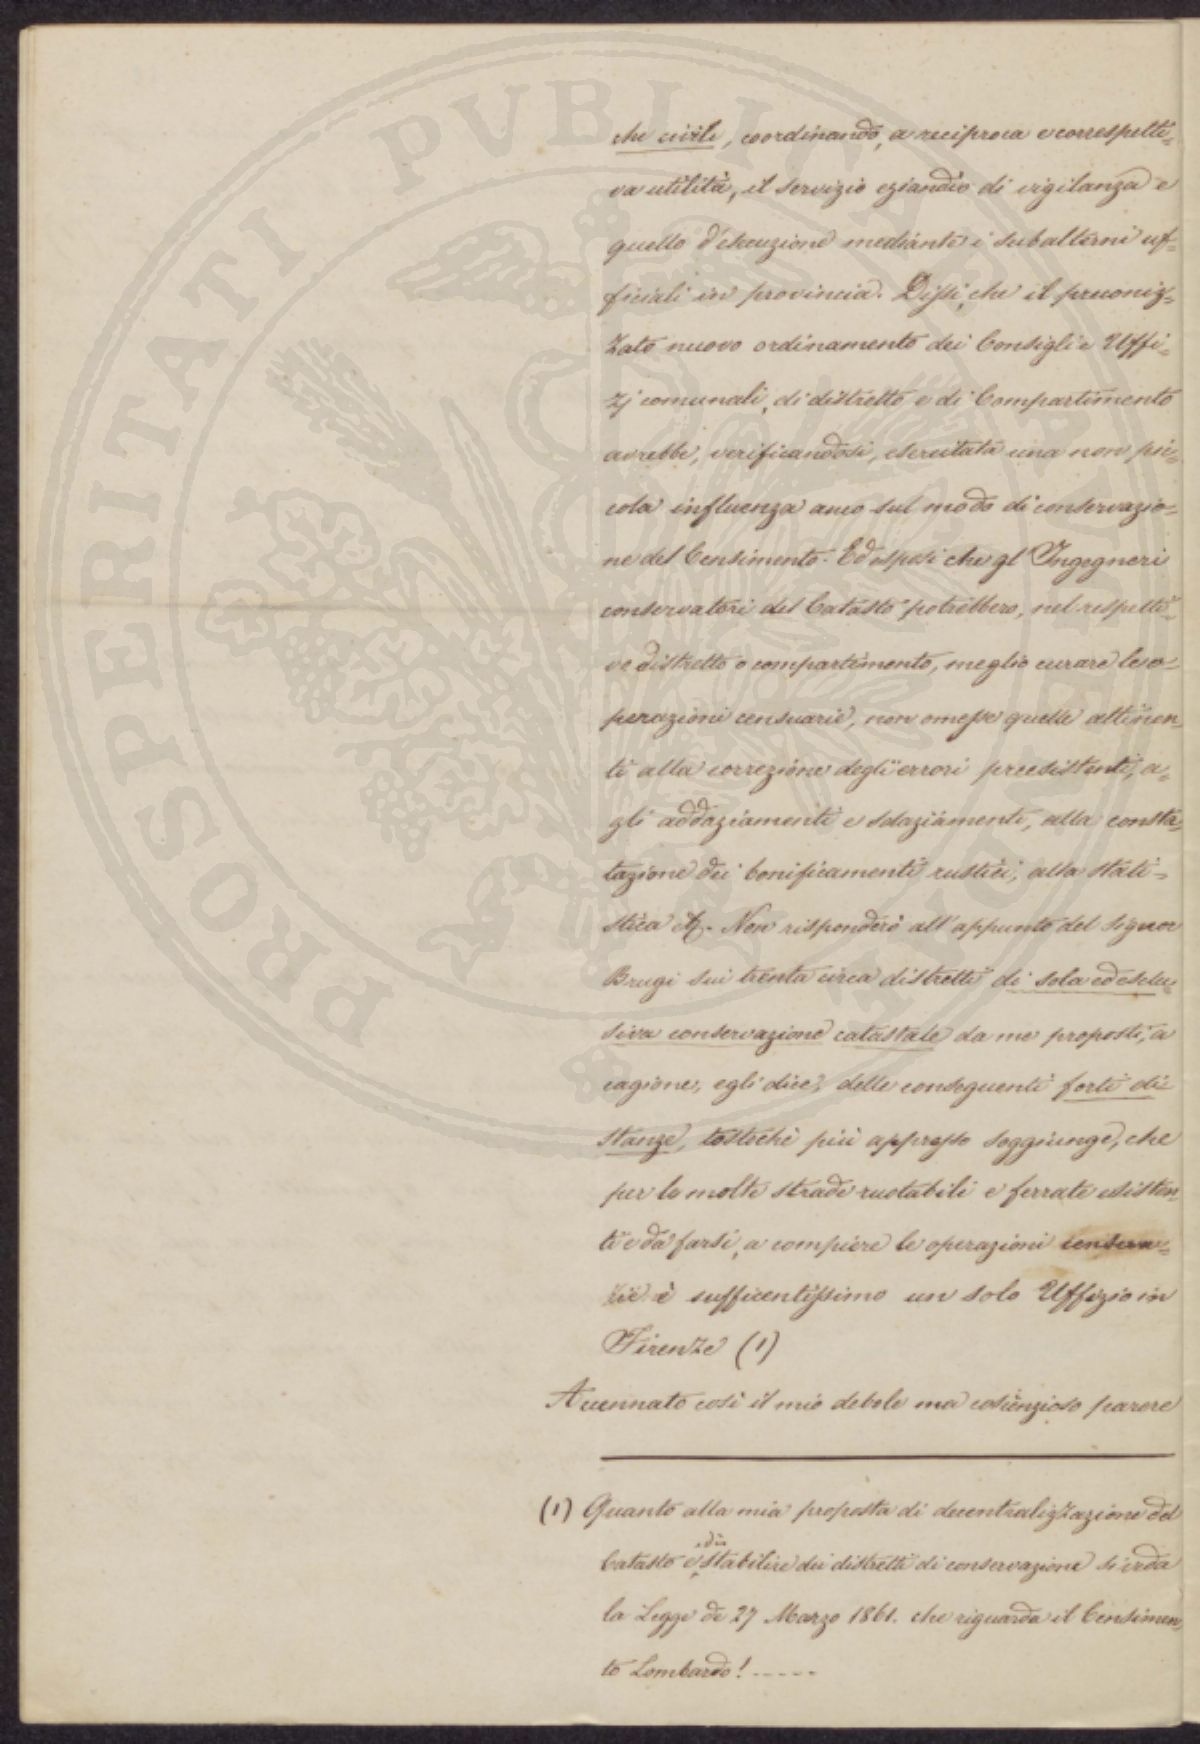 PROSPERITATI PVBLICAE AVGENDAE
che civile, coordinando, a reciproca e correspetti=
va utilità, il servizio eziandio di vigilanza e
quello d'esecuzione mediante i subalterni uf=
ficiali in provincia. Dissi, che il preconiz=
zato nuovo ordinamento dei Consigli e Uffi=
zj comunali, di distretto e di Compartimento
avrebbe, verificandosi, esercitata una non pic=
cola influenza anco sul modo di conservazio=
ne del Censimento. Ed esposi che gl'Ingegneri
conservatori del Catasto potrebbero, nel respetti=
vo distretto o compartimento, meglio curare le o=
perazioni censuarie, non omesse quelle attinen=
ti alla correzione degli errori preesistenti, a=
gli addaziamenti e sdaziamenti, alla consta=
tazione dei bonificamenti rustici, alla stati=
stica &. Non risponderò all'appunto del signor
Brugi sui trenta circa distretti di sola ed esclu=
siva conservazione catastale da me proposti, a
cagione, egli dice, delle conseguenti forti di=
stanze, tostochè più appresso soggiunge, che
per le molte strade ruotabili e ferrate esisten=
ti e da farsi, a compiere le operazioni censua=
rie è sufficentissimo un solo Uffizio in
Firenze (1)
Accennato così il mio debole ma coscienzioso parere
(1) Quanto alla mia proposta di decentralizzazione del
Catasto e di stabilire dei distretti di conservazione si veda
la Legge de 27 Marzo 1861. che riguarda il Censimen=
to Lombardo! -----